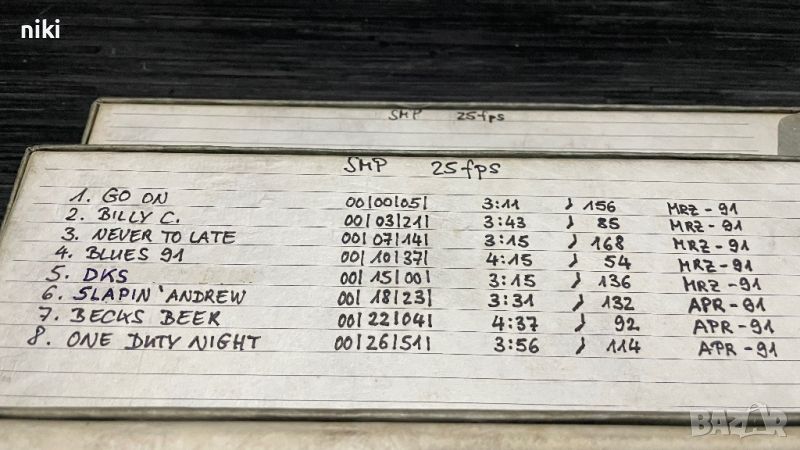 niki
SMP 25fps
SMP 25fps
1. GO ON 00|00|05| 3:11 ♪ 156 MRZ-91
2. BILLY C. 00|03|21| 3:43 ♪ 85 MRZ-91
3. NEVER TO LATE 00|07|14| 3:15 ♪ 168 MRZ-91
4. BLUES 91 00|10|37| 4:15 ♪ 54 MRZ-91
5. DKS 00|15|00| 3:15 ♪ 136 MRZ-91
6. SLAPIN' ANDREW 00|18|23| 3:31 ♪ 132 APR-91
7. BECKS BEER 00|22|04| 4:37 ♪ 92 APR-91
8. ONE DUTY NIGHT 00|26|51| 3:56 ♪ 114 APR-91
BAZAR